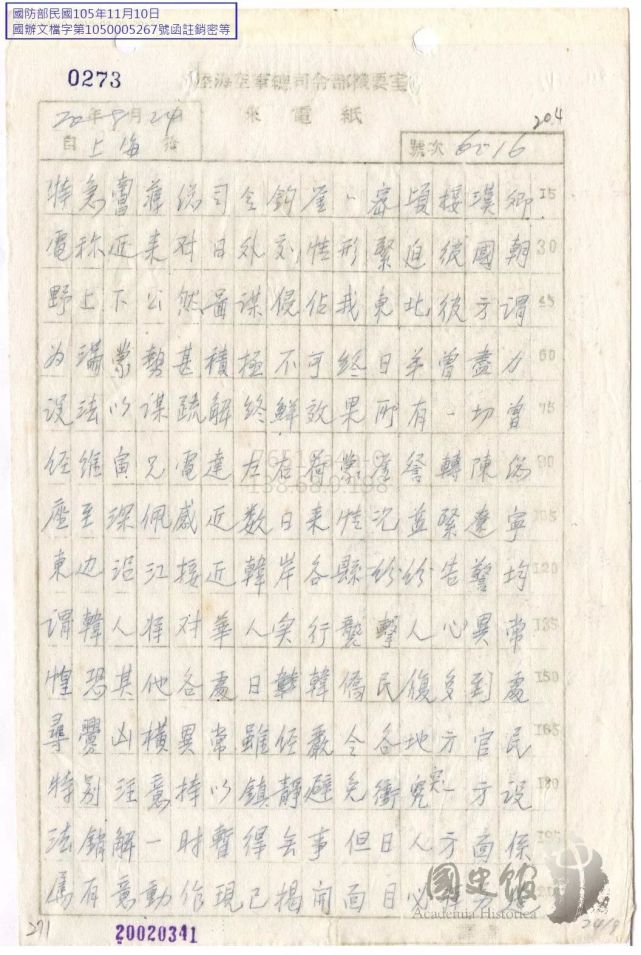 國防部民國105年11月10日
國辦文檔字第1050005267號函註銷密等
0273
陸海空軍總司令部機要室
來電紙
20年8月24日
204
自上海發
號次 6216
特急蔣總司令鈞座密頃接漢卿 15
電称近来对日外交情形緊迫彼國朝 30
野上下公然啚謀侵佔我東北彼方謂 45
为滿蒙勢甚積極不可終日弟曾盡力 60
设法以谋疏解终鮮效果所有一切曾 75
经维寅兄電達左右荷蒙詧轉陳 90
座至深佩感近数日来情況益緊遼寧 105
東边沿江接近韓岸各縣纷纷告警均 120
謂韓人将对華人実行襲擊人心異常 135
惶恐其他各處日韓僑民復多到處 150
尋釁凶横異常雖经嚴令各地方官民 165
特别注意持以鎮靜避免衝突一方设 180
法解一时暫得無事但日人方面係 195
属有意動作現已揭開面目必
國史館
Academia Historica
271
20020341
24/8